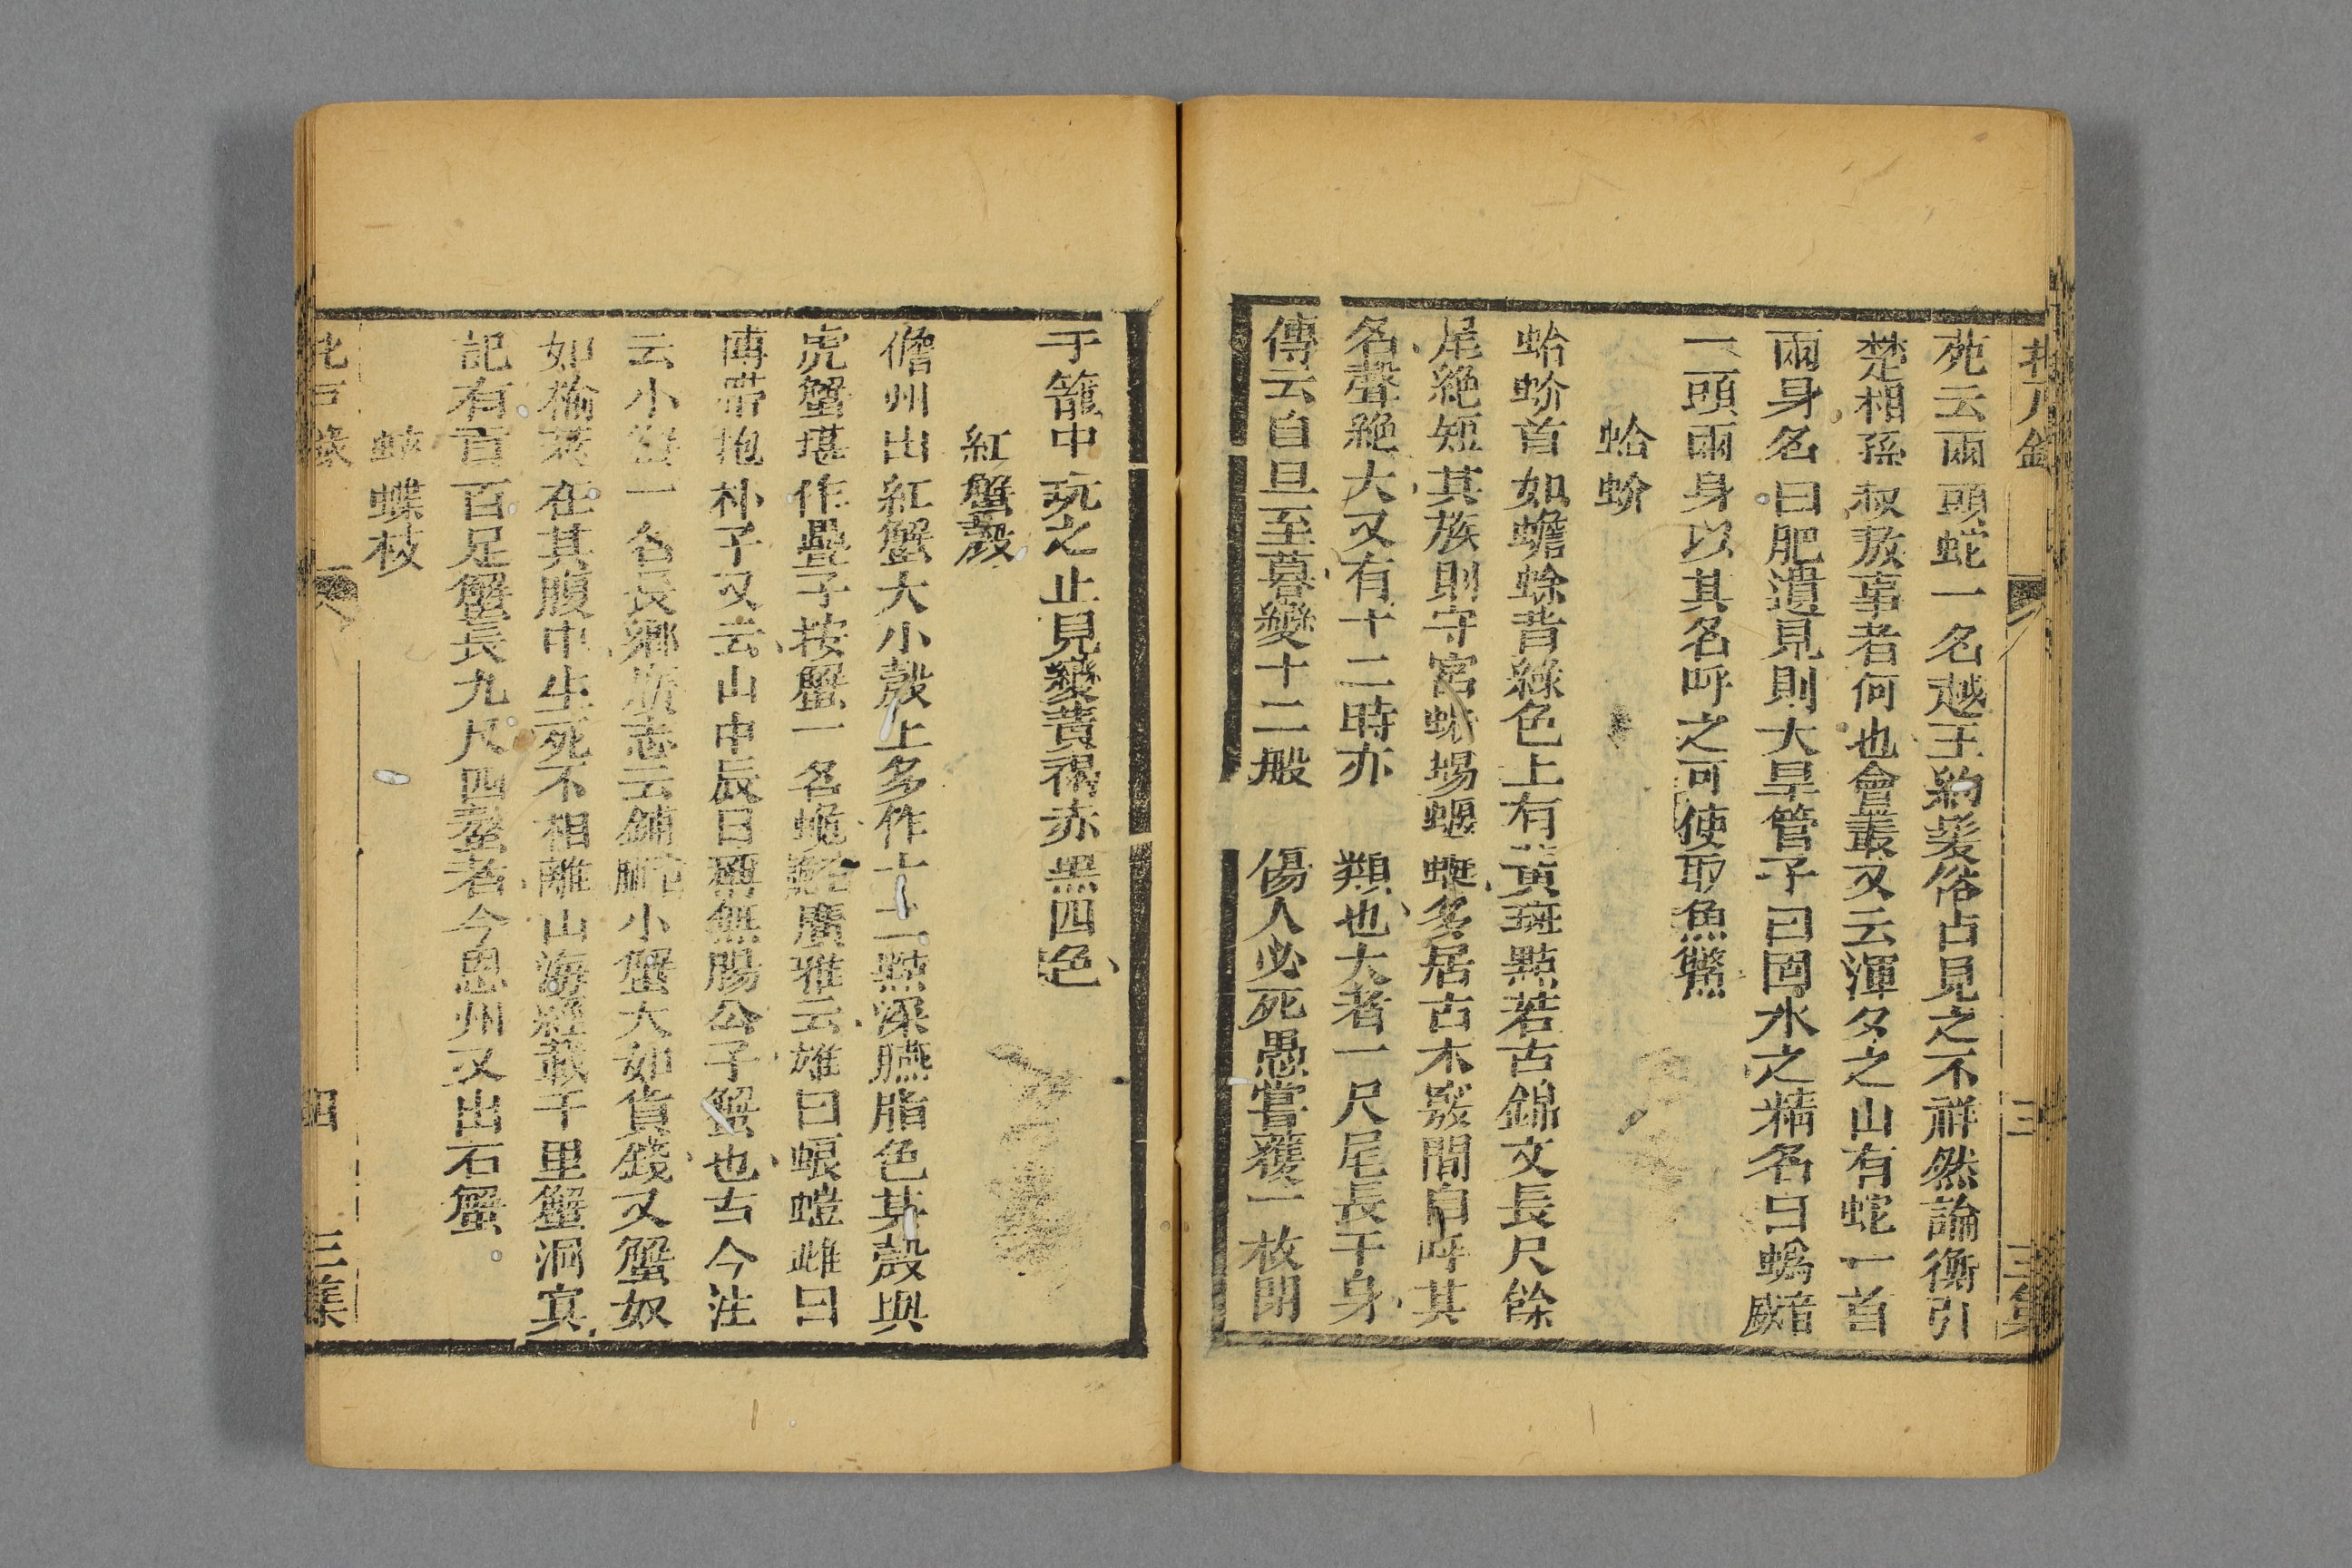 苑云兩頭蛇一名越王約髪俗占見之不祥然論衡引
楚相孫叔敖事者何也會叢又云渾夕之山有蛇一首
兩身名曰肥遺見則大旱管子曰固水之精名曰蟡
一頭兩身以其名呼之可使取魚鱉
蛤蚧
蛤蚧首如蟾蜍背綠色上有黄斑點若古錦文長尺餘
尾絶短其族則守宮蜥蜴蝘蜓多居古木竅間自呼其
名聲絶大又有十二時亦類也大者一尺尾長于身
傳云自旦至暮變十二般傷人必死愚嘗獲一枚閉
于籠中玩之止見變黄褐赤黑四色
紅蟹殼
儋州出紅蟹大小殼上多作十二點深臙脂色其殼與
虎蟹堪作疊子按蟹一名蛫廣雅云雄曰䗌螘雌曰
博帶抱朴子又云山中辰日稱無腸公子蟹也古今注
云小蟹一名長卿廣志云鋪小蟹大如貨錢又蟹奴
如榆莢在其腹中生死不相離山海經載千里蟹洞冥
記有百足蟹長九尺四螯者今恩州又出石蟹
蛺蝶枝
北戸錄 四 三集